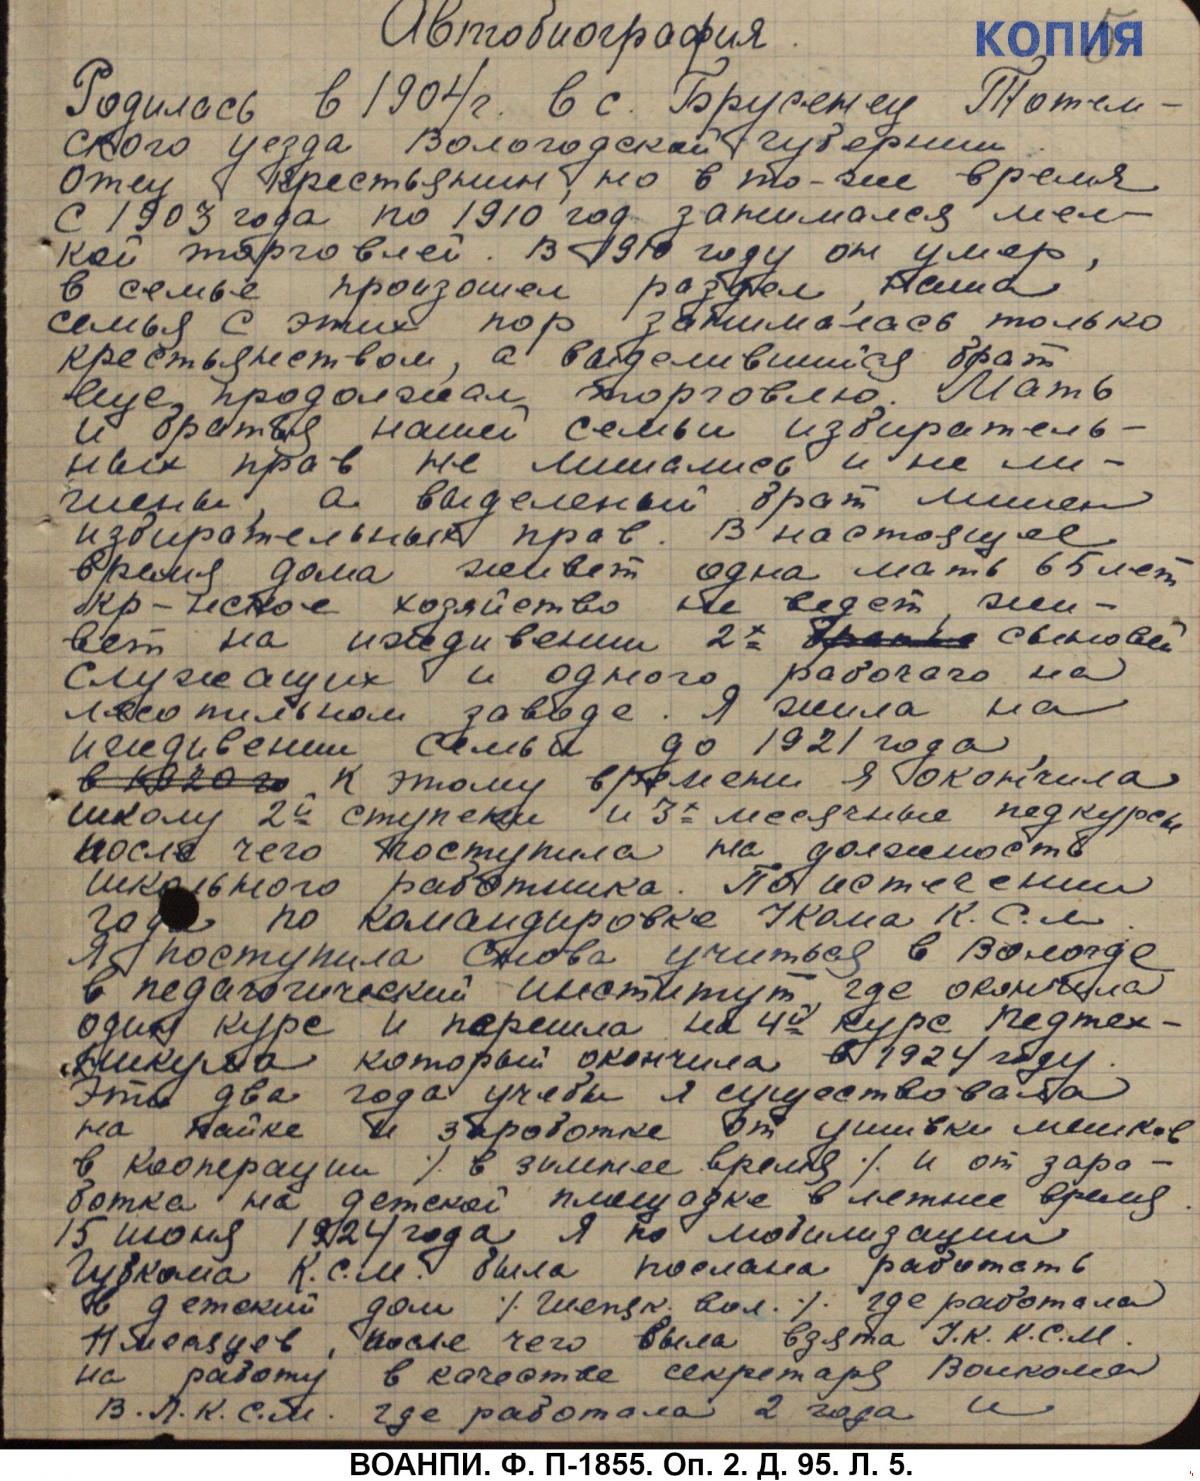 5
КОПИЯ
Автобиография.
Родилась в 1904 г. в с. Брусенец Тотем-
ского уезда Вологодской губернии.
Отец крестьянин, но в то-же время
с 1903 года по 1910 год занимался мел-
кой торговлей. В 1910 году он умер,
в семье произошел раздел, наша
семья с этих пор занималась только
крестьянством, а выделившийся брат
еще продолжал торговлю. Мать
и братья нашей семьи избиратель-
ных прав не лишались и не ли-
шены, а выделеный брат лишен
избирательных прав. В настоящее
время дома живет одна мать 65 лет
кр-ческое хозяйство не ведет, жи-
вет на иждивении 2х братье сыновей
служащих и одного рабочаго на
лесопильном заводе. Я жила на
иждивении семьи до 1921 года,
в 1920 го к этому времени я окончила
школу 2й ступени и 3х месячные педкурсы
после чего поступила на должность
школьного работника. По истечении
года по командировке Укома К.С.М.
я поступила снова учиться в Вологде
в педагогический институт, где окончила
один курс и перешла на 4й курс Педтех-
никума который окончила в 1924 году.
Эти два года учебы я существовала
на пайке и заработке от ушивки мешков
в кооперации /. в зимнее время /. и от зара-
ботка на детской площадке в летнее время.
15 июня 1924 года я по мобилизации
Губкома К.С.М. была послана работать
в детский дом /. Шепяк. вол. /. где работала
11 месяцев, после чего была взята У.К. К.С.М.
на работу в качестве секретаря Волкома
В.Л.К.С.М. где работала 2 года и
ВОАНПИ. Ф. П-1855. Оп. 2. Д. 95. Л. 5.